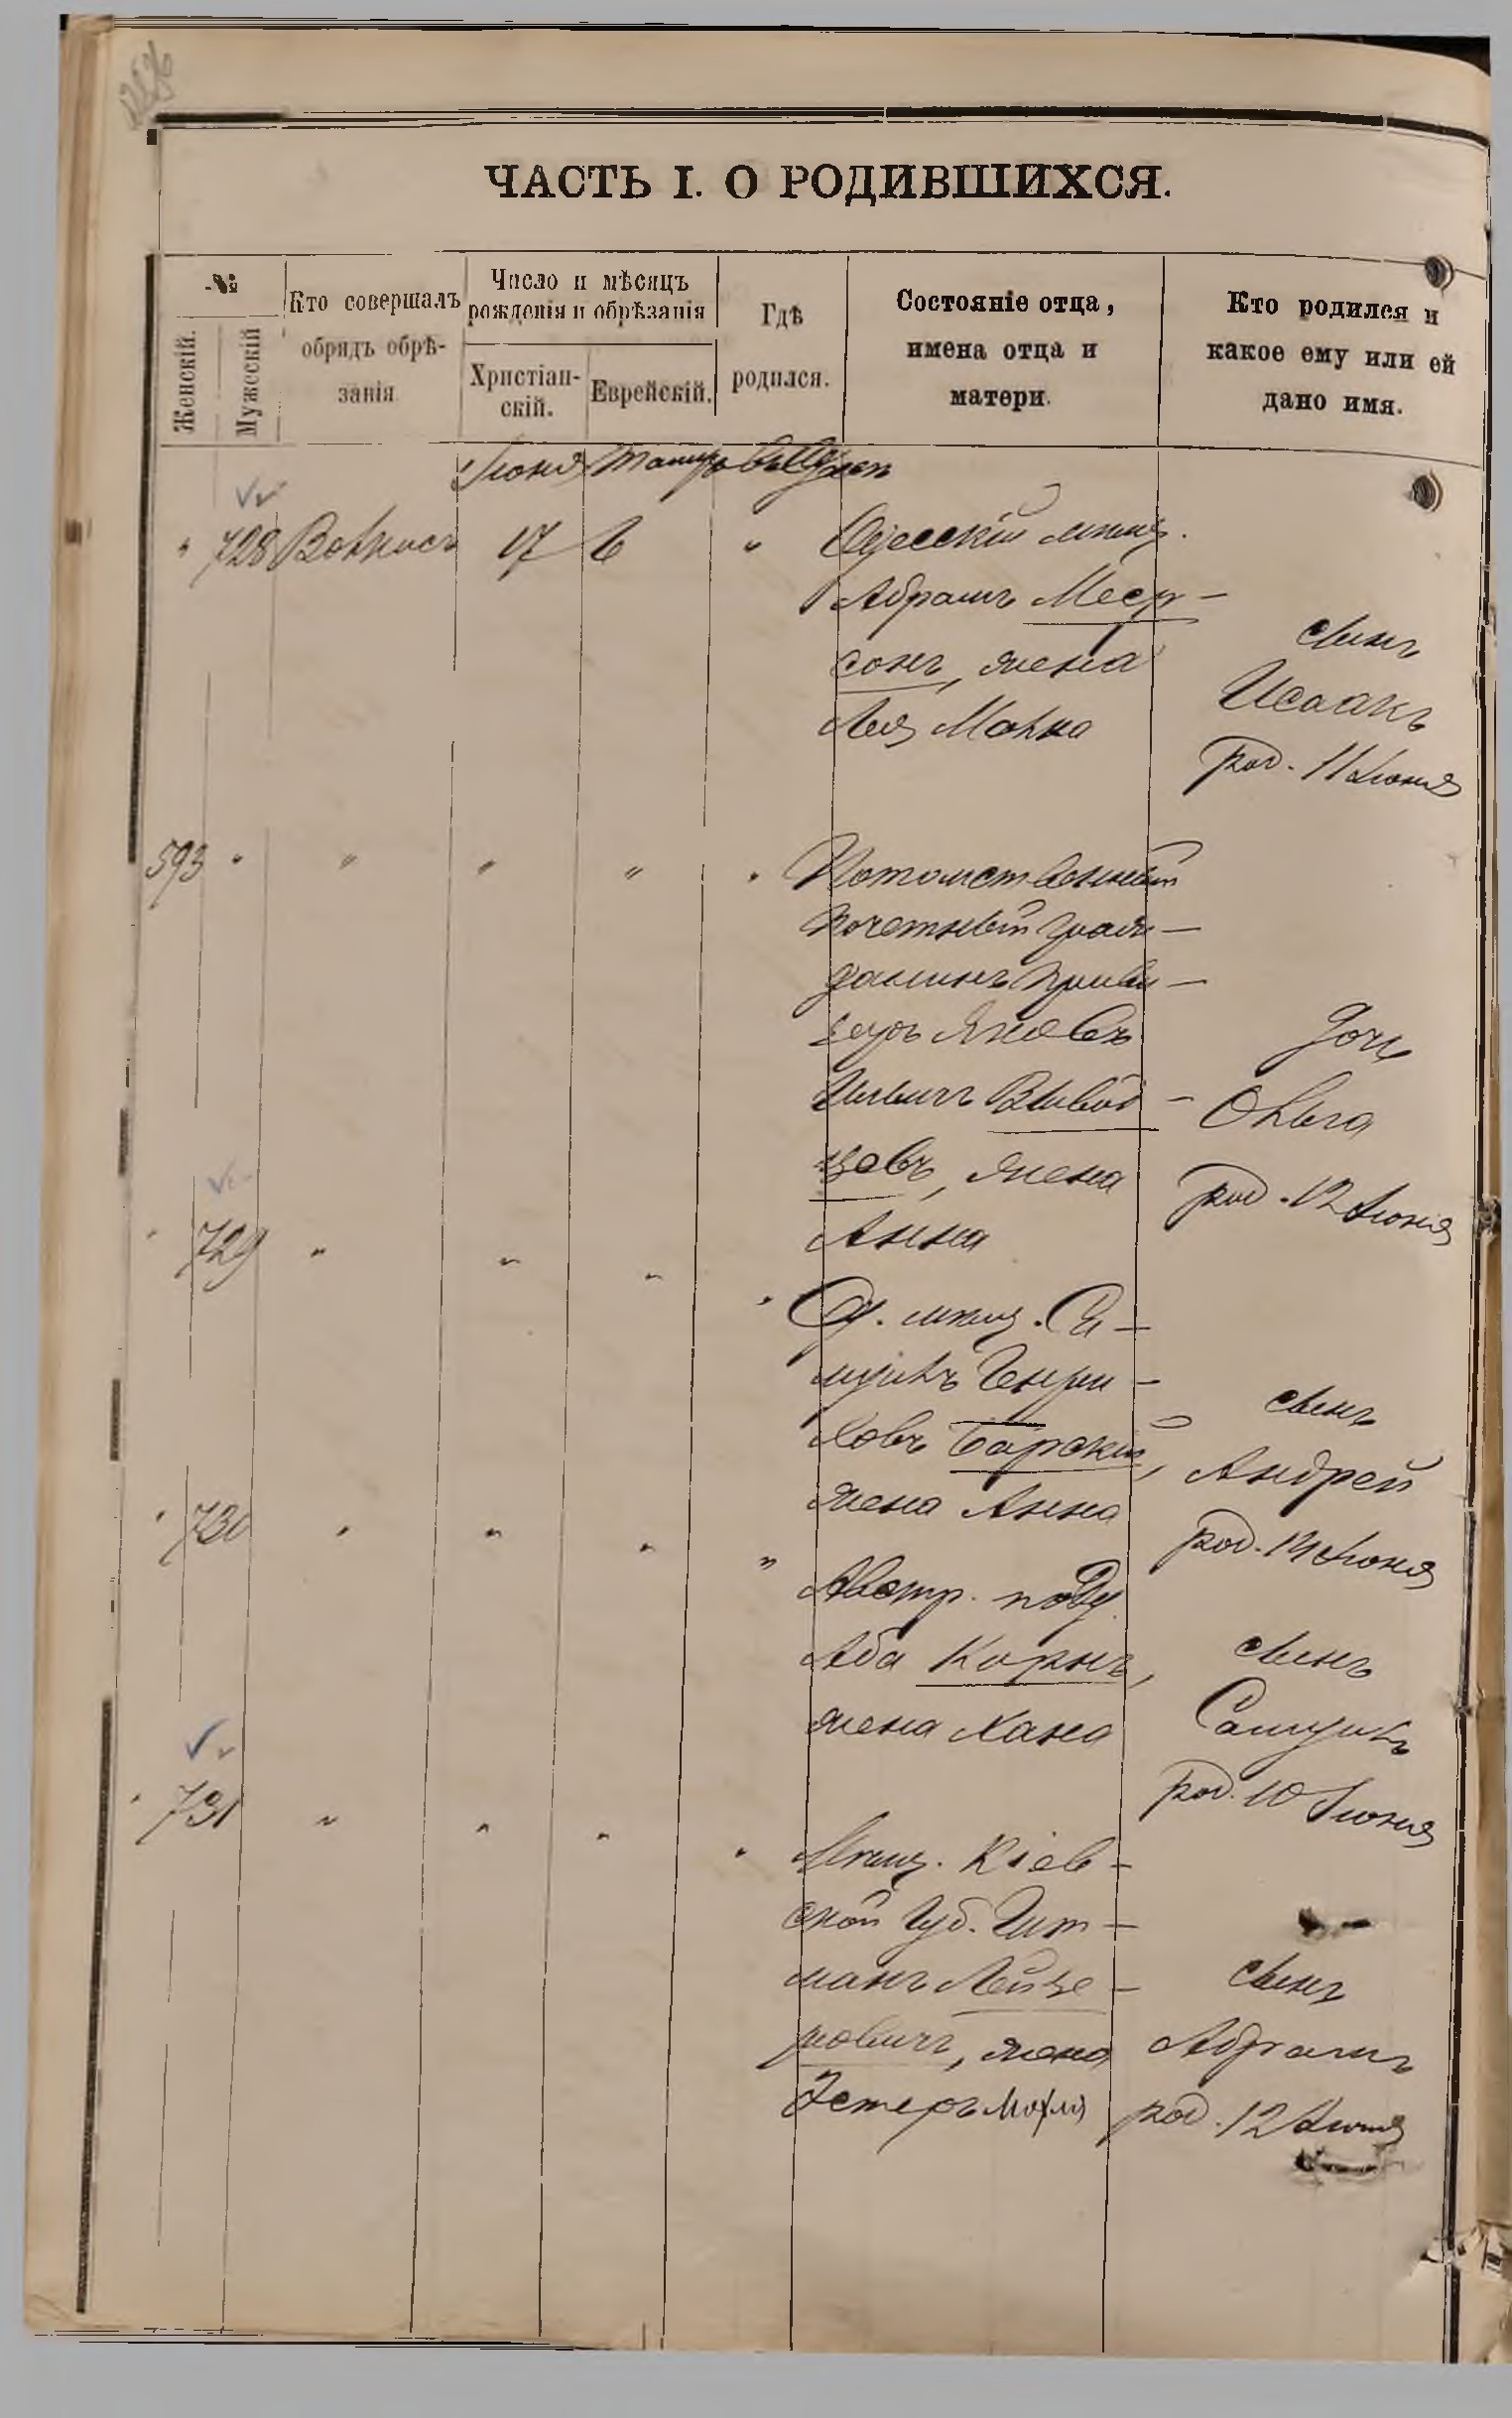 ЧАСТЬ I. О РОДИВШИХСЯ.
№
Женскій.
Мужескій
Кто совершалъ
обрядъ обрѣ-
занія
Число и мѣсяцъ
рожденія и обрѣзанія
Христіан-
скій.
Еврейскій.
Гдѣ
родился.
Состояніе отца,
имена отца и
матери.
Кто родился и
какое ему или ей
дано имя.
Іюня
" 728
17 6 "
Одесскій мѣщ.
Абрамъ Меер-
сонъ, жена
Лея Малка
сынъ
Исаакъ
род. 11 Іюня
593 " " " " "
Потомственный
почетный граж-
данинъ прови-
зоръ Яковъ
Ильичъ Вывод-
цовъ, жена
Анна
дочь
Ольга
род. 12 Іюня
" 729 " " " "
Од. мѣщ. Са-
муилъ Генри-
ховъ Барскій,
жена Анна
сынъ
Андрей
род. Іюня
" 730 " " " "
Австр. подд.
Аба Корнъ,
жена Хана
сынъ
Самуилъ
род. 10 Іюня
" 731 " " " "
Мѣщ. Кіев-
ской губ. Гит-
манъ Лейзе-
ровичъ, жена
Эстеръ
сынъ
Абрамъ
род. 12 Іюня